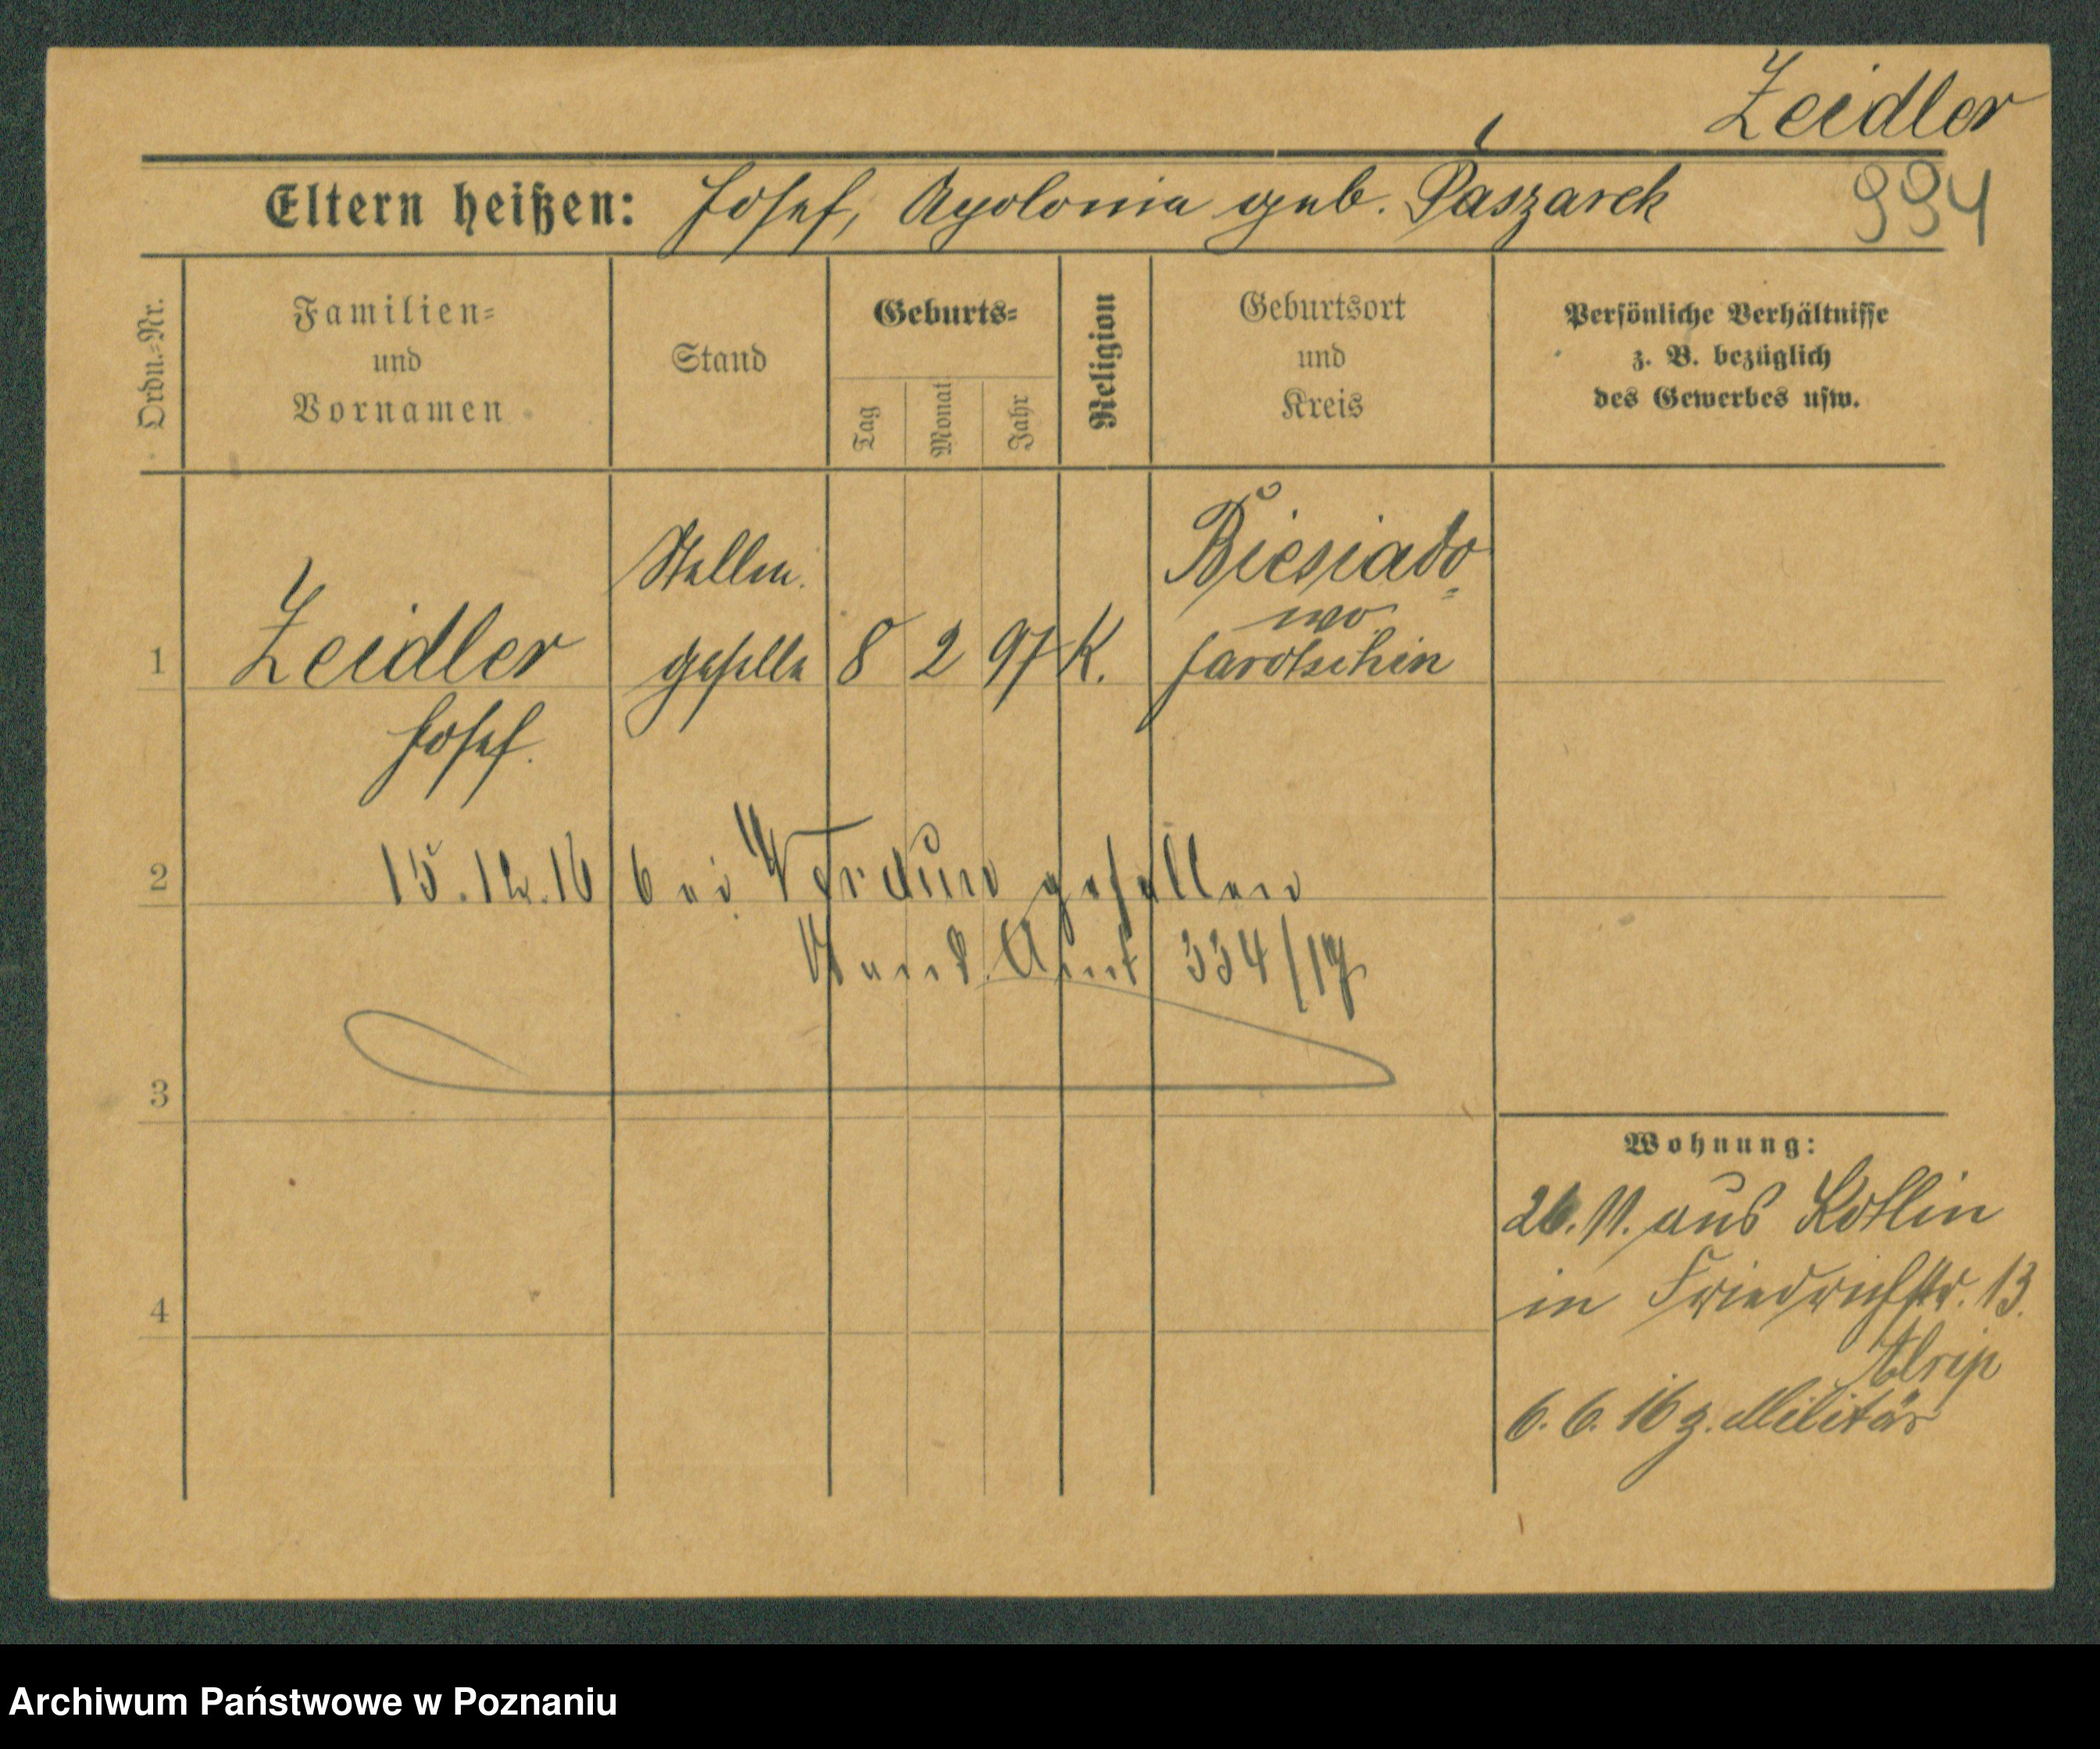 Zeidler
Eltern heißen: Josef, Apolonia geb. Paszarek
994
Ordn.-Nr.
Familien-
und
Vornamen
Stand
Geburts-
Tag
Monat
Jahr
Religion
Geburtsort
und
Kreis
Persönliche Verhältnisse
z. B. bezüglich
des Gewerbes usw.
1
Zeidler
Josef.
geselle
8 2 97 K.
Biesiado-
wo
Jarotschin
2
15.12.16 bei Verdun gefallen
Amt 334/17
3
4
Wohnung:
26.11. aus Kotlin
in Friedrichstr. 13.
6.6.16 z. Militär
Archiwum Państwowe w Poznaniu